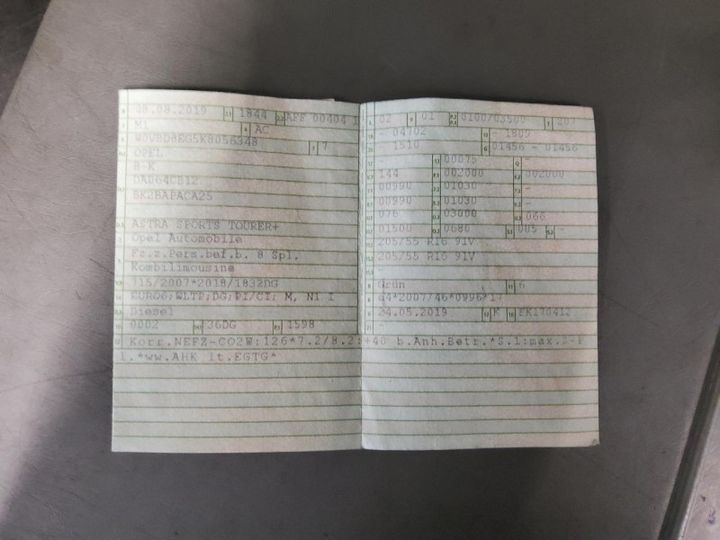 08.08.2019 1844 AFF 00404
M1 AC
W0VBD8EG5K8056348 7
OPEL
B-K
DA064CB12
BK2BAPACA25
ASTRA SPORTS TOURER+
Opel Automobile
Fz.z.Pers.bef.b. 8 Spl.
Kombilimousine
715/2007*2018/1832DG
EURO6;WLTP;DG;PI/CI; M, N1 I
Diesel
0002 36DG 1598
02 01 0100/03500 207
- 04702 - 1809
- 1510 01456 - 01456
- 00075 -
144 002000 002000
00990 01030 -
00990 01030 -
076 03000 066
01500 0680 005 -
205/55 R16 91V
205/55 R16 91V
-
Grün 6
e4*2007/46*0996*17
24.05.2019 K EK170412
-
Korr.NEFZ-CO2W:126*7.2/8.2:+40 b.Anh.Betr.*S.1:max.
1.*ww.AHK lt.EGTG*